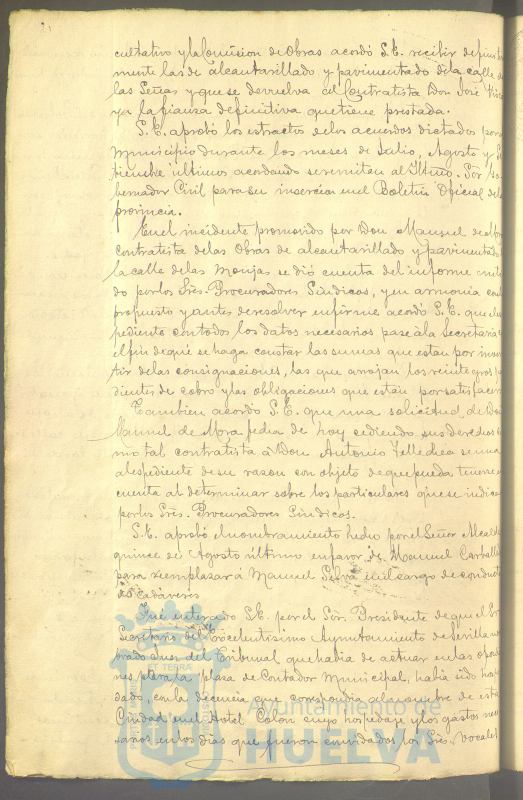 cultativo y la Comision de Obras acordó S.E. recibir
mente las de alcantarillado y pavimentado de la calle de
las Señas y que se devuelva al Contratista Don José
ya la fianza definitiva que tiene prestada.
S.E. aprobó los extractos de los acuerdos dictados por
Municipio durante los meses de Julio, Agosto y Se
tiembre últimos acordando se remitan al Iltmo. Sor Go
bernador Civil para su insercion en el Boletin Oficial de la
provincia.
En el incidente promovido por Don Manuel de Mor
contratista de las Obras de alcantarillado y pavimentado
la calle de las Monjas se dió cuenta del informe emiti
do por los Sres. Procuradores Sindicos, y en armonia con
propuesto y antes de resolver en firme acordó S.E. que el es
pediente con todos los datos necesarios pase á la Secretaria
el fin de que se haga constar las sumas que estan por inver
tir de las consignaciones, las que arrojan los reintegros pen
dientes de cobro y las obligaciones que estan por satisfacer
Tambien acordó S.E. que una solicitud de Don
Manuel de Mora fecha de hoy cediendo sus derechos co
mo tal contratista á Don Antonio Tellechea se una
al espediente de su razon con objeto de que pueda tenerse en
cuenta al determinar sobre los particulares que se indican
por los Sres. Procuradores Sindicos.
S.E. aprobó el nombramiento hecho por el Señor Alcalde
quince de Agosto último en favor de Manuel Carballo
para reemplazar á Manuel Silva en el cargo de conductor
de cadáveres
Fué enterado S.E. por el Sor. Presidente de que el Sr
Secretario del Excelentísimo Ayuntamiento de Sevilla
Juez del Tribunal que habia de actuar en las oposi
nes para la plaza de Contador Municipal, habia sido hospe
dado, con la decencia que correspondia al nombre de esta
Ciudad en el Hotel Colon cuyo hospedaje y los gastos nece
sarios en los dias que fueron convidados los Sres. Vocales
Ayuntamiento de
HUELVA